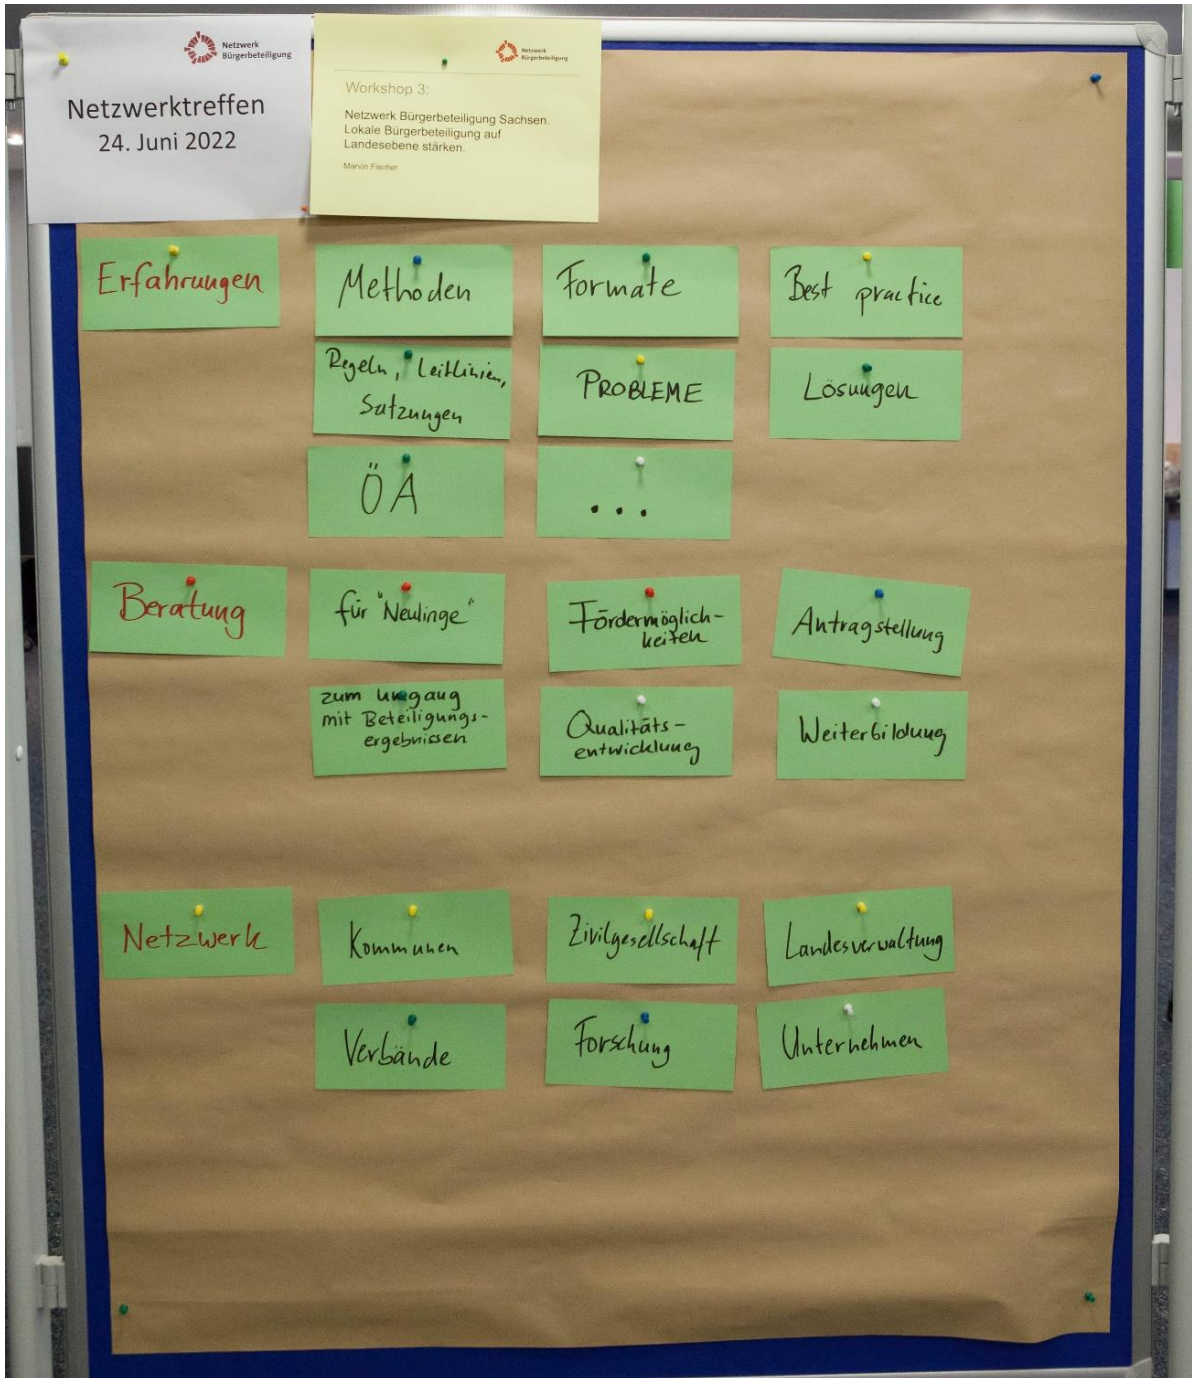 Netzwerk
Bürgerbeteiligung
Netzwerktreffen
24. Juni 2022
Netzwerk
Bürgerbeteiligung
Workshop 3:
Netzwerk Bürgerbeteiligung Sachsen.
Lokale Bürgerbeteiligung auf
Landesebene stärken.
Marvin Fischer
Erfahrungen
Methoden
Formate
Best practice
Regeln, Leitlinien,
Satzungen
PROBLEME
Lösungen
ÖA
...
Beratung
für "Neulinge"
Fördermöglich-
keiten
Antragstellung
zum Umgang
mit Beteiligungs-
ergebnissen
Qualitäts-
entwicklung
Weiterbildung
Netzwerk
Kommunen
Zivilgesellschaft
Landesverwaltung
Verbände
Forschung
Unternehmen